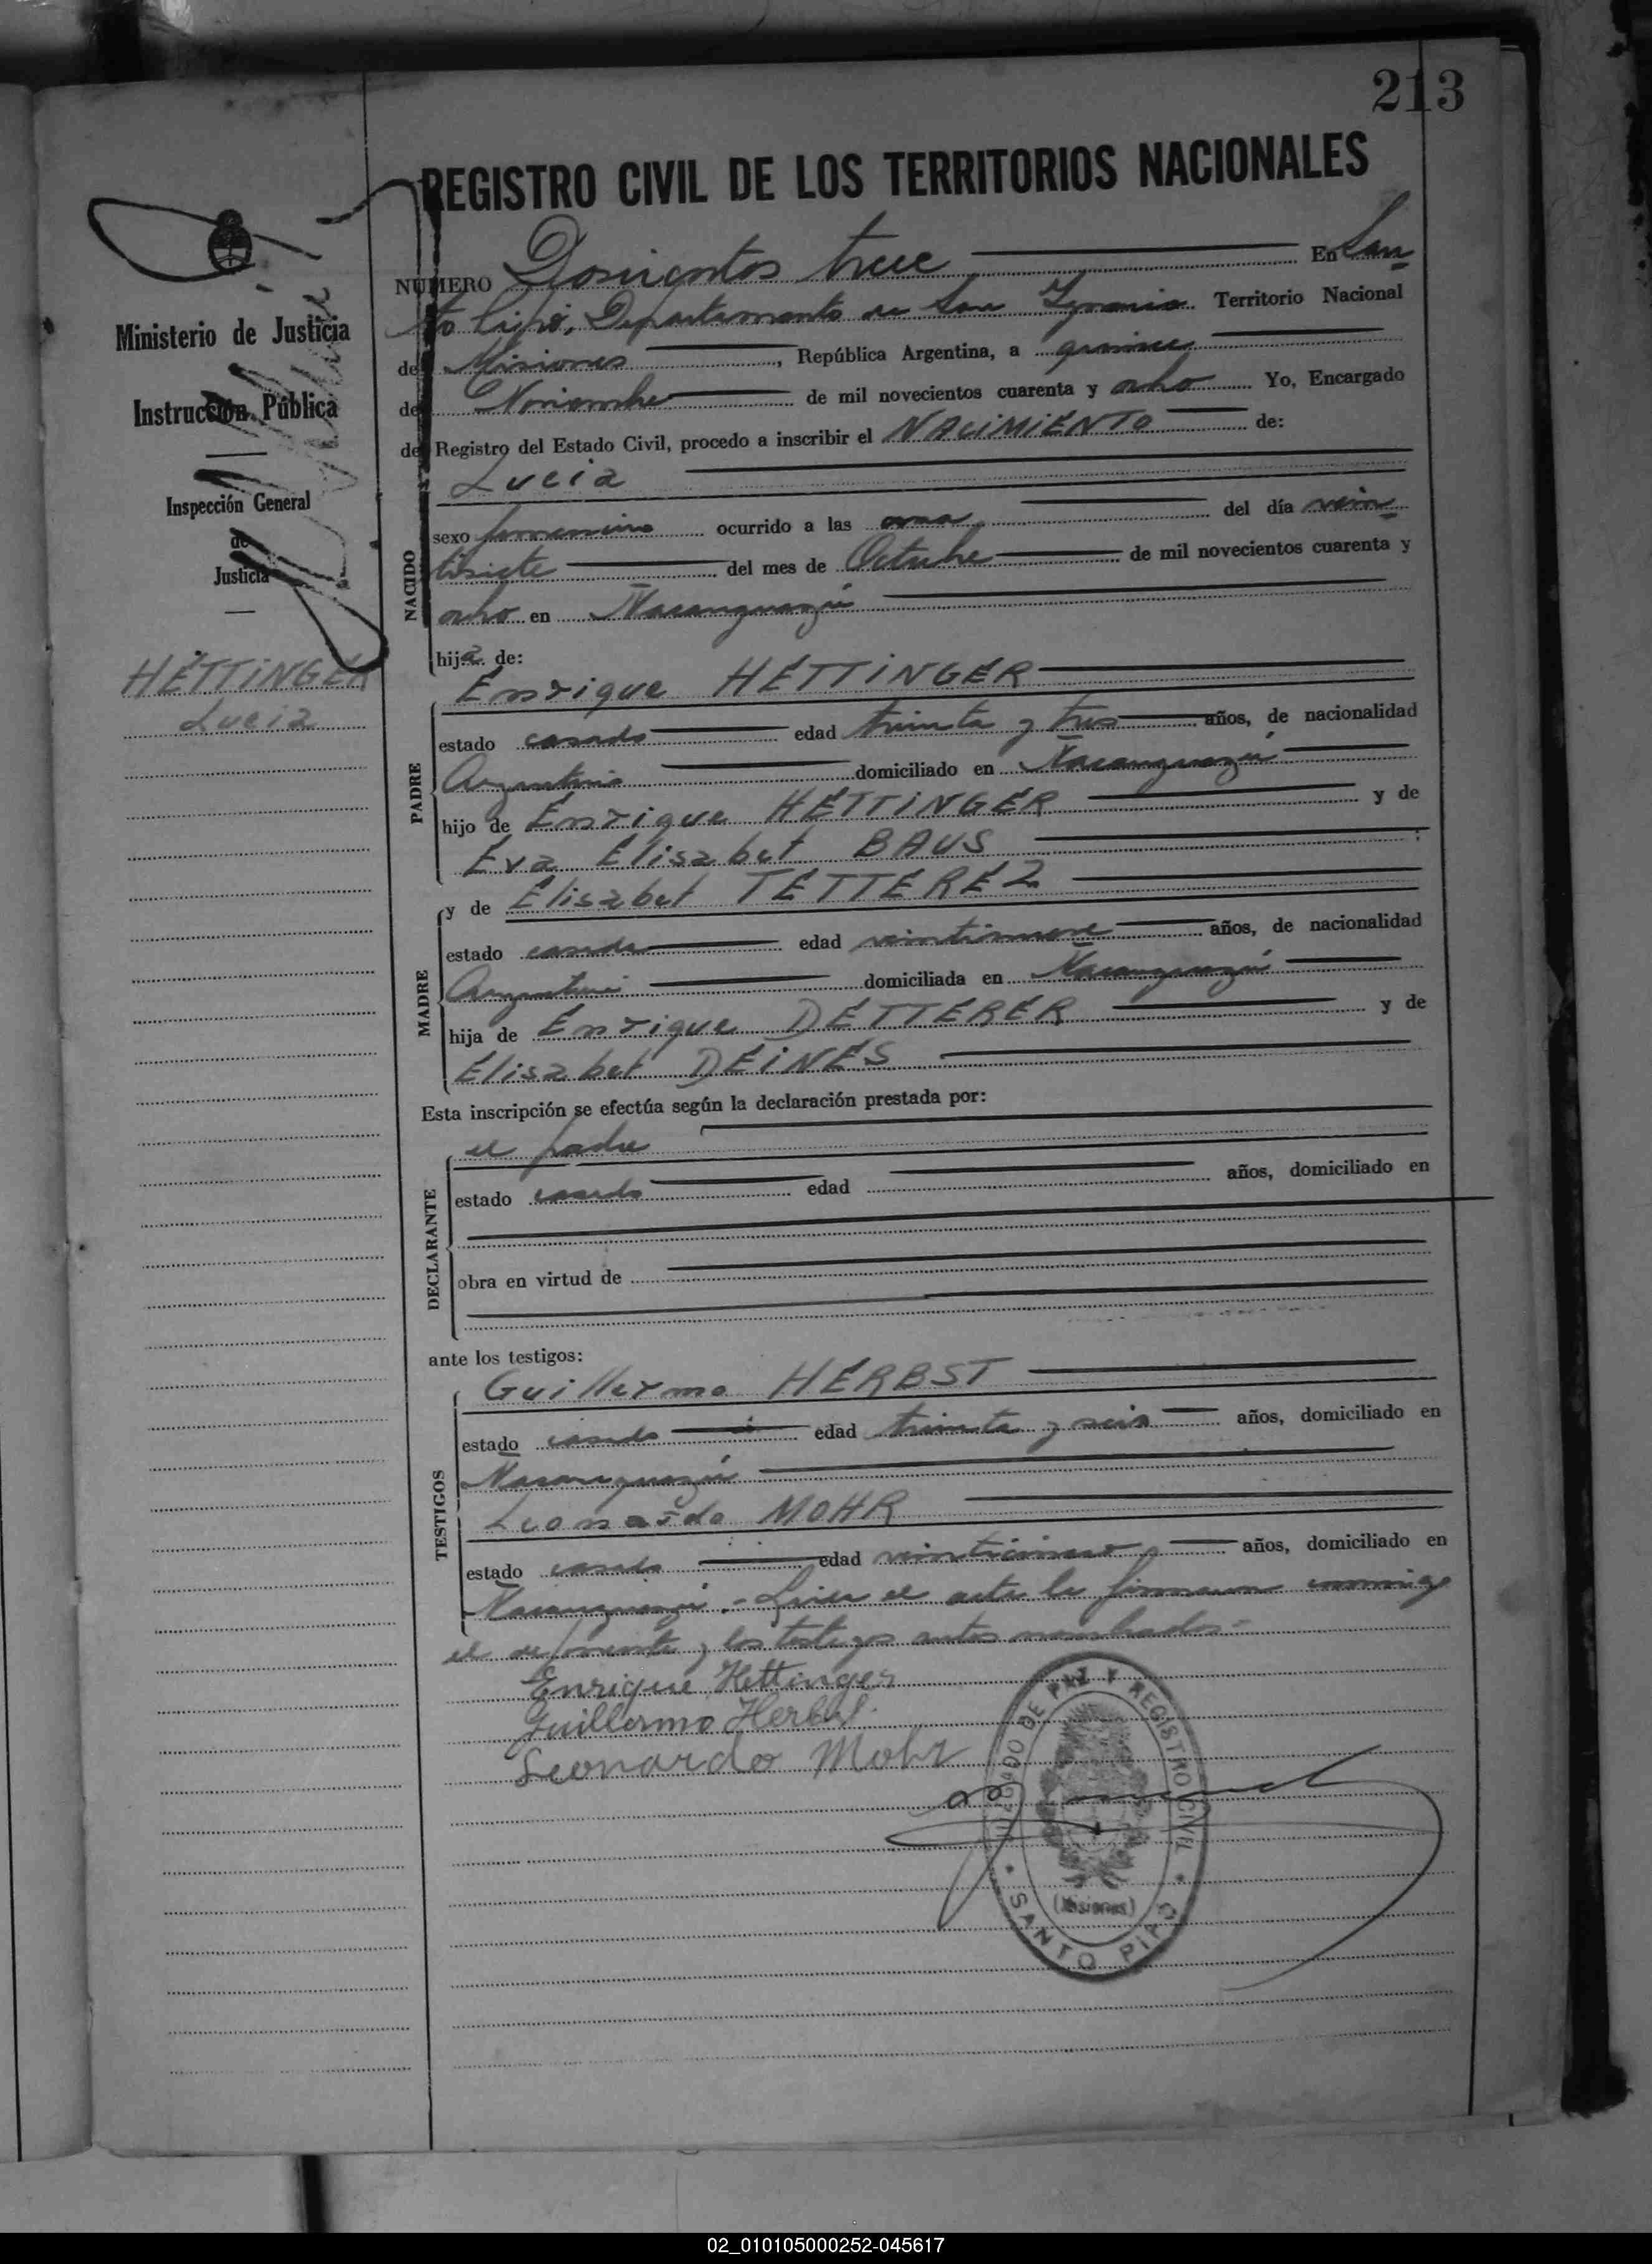 213
REGISTRO CIVIL DE LOS TERRITORIOS NACIONALES
Ministerio de Justicia
Instrucción Pública
Inspección General
de
Justicia
HETTINGER
Lucia
NUMERO Doscientos trece En San
to Pipó, Departamento de San Ignacio Territorio Nacional
de Misiones, República Argentina, a quince
de Noviembre de mil novecientos cuarenta y ocho Yo, Encargado
del Registro del Estado Civil, procedo a inscribir el NACIMIENTO de:
NACIDO
Lucia
sexo femenino ocurrido a las del día vein
tisiete del mes de Octubre de mil novecientos cuarenta y
ocho en Ñacanguazú
hija de:
PADRE
Enrique HETTINGER
estado casado edad treinta y tres años, de nacionalidad
Argentina domiciliado en Ñacanguazú
hijo de Enrique HETTINGER y de
Eva Elisabet BAUS
MADRE
y de Elisabet TETTEREZ
estado casada edad veintinueve años, de nacionalidad
Argentina domiciliada en Ñacanguazú
hija de Enrique DETTERER y de
Elisabet DEINES
Esta inscripción se efectúa según la declaración prestada por:
DECLARANTE
el padre
estado casado edad años, domiciliado en
obra en virtud de
ante los testigos:
TESTIGOS
Guillermo HERBST
estado casado edad treinta y seis años, domiciliado en
Ñacanguazú
Leonardo MOHR
estado casado edad veinticinco años, domiciliado en
Ñacanguazú.- Leida el acta la firmaron conmigo
el exponente y los testigos antes nombrados-
Enrique Hettinger
Guillermo Herbst
Leonardo Mohr
JUZGADO DE PAZ Y REGISTRO CIVIL
(Misiones)
SANTO PIPO
02_010105000252-045617